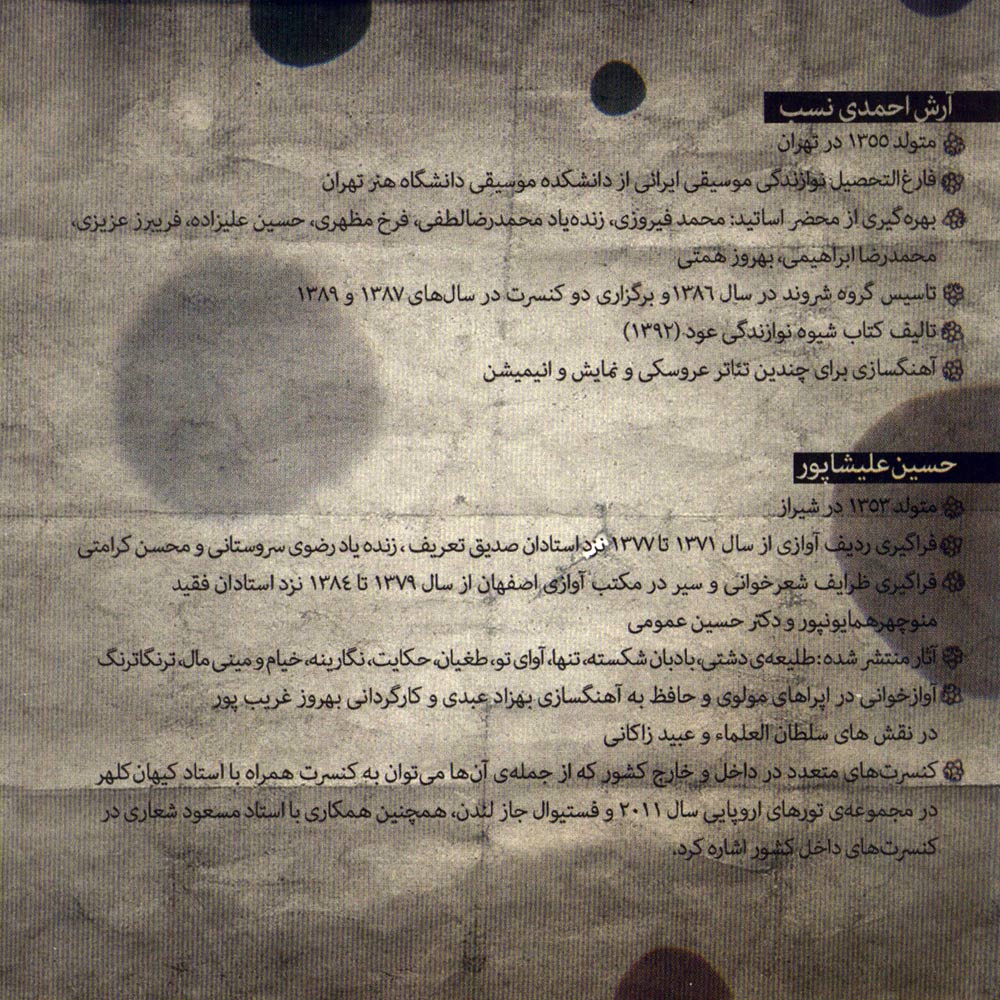 آرش احمدی نسب
متولد ۱۳۵۵ در تهران
فارغ‌التحصیل نوازندگی موسیقی ایرانی از دانشکده موسیقی دانشگاه هنر تهران
بهره‌گیری از محضر اساتید: محمد فیروزی، زنده‌یاد محمدرضالطفی، فرخ مظهری، حسین علیزاده، فریبرز عزیزی،
محمدرضا ابراهیمی، بهروز همتی
تاسیس گروه شروند در سال ۱۳۸۶و برگزاری دو کنسرت در سال‌های ۱۳۸۷ و ۱۳۸۹
تالیف کتاب شیوه نوازندگی عود (۱۳۹۲)
آهنگسازی برای چندین تئاتر عروسکی و نمایش و انیمیشن
حسین علیشاپور
متولد ۱۳۵۳ در شیراز
فراگیری ردیف آوازی از سال ۱۳۷۱ تا ۱۳۷۷ نزد استادان صدیق تعریف ، زنده یاد رضوی سروستانی و محسن کرامتی
فراگیری ظرایف شعرخوانی و سیر در مکتب آوازی اصفهان از سال ۱۳۷۹ تا ۱۳۸۴ نزد استادان فقید
منوچهرهمایونپور و دکتر حسین عمومی
آثار منتشر شده: طلیعه‌ی دشتی، بادبان شکسته، تنها، آوای تو، طغیان، حکایت، نگارینه، خیام و مینی مال، ترنگاترنگ
آوازخوانی در اپراهای مولوی و حافظ به آهنگسازی بهزاد عبدی و کارگردانی بهروز غریب پور
در نقش های سلطان العلماء و عبید زاکانی
کنسرت‌های متعدد در داخل و خارج کشور که از جمله‌ی آن‌ها می‌توان به کنسرتِ همراه با استاد کیهان کلهر
در مجموعه‌ی تورهای اروپایی سال ۲۰۱۱ و فستیوال جاز لندن، همچنین همکاری با استاد مسعود شعاری در
کنسرت‌های داخل کشور اشاره کرد.